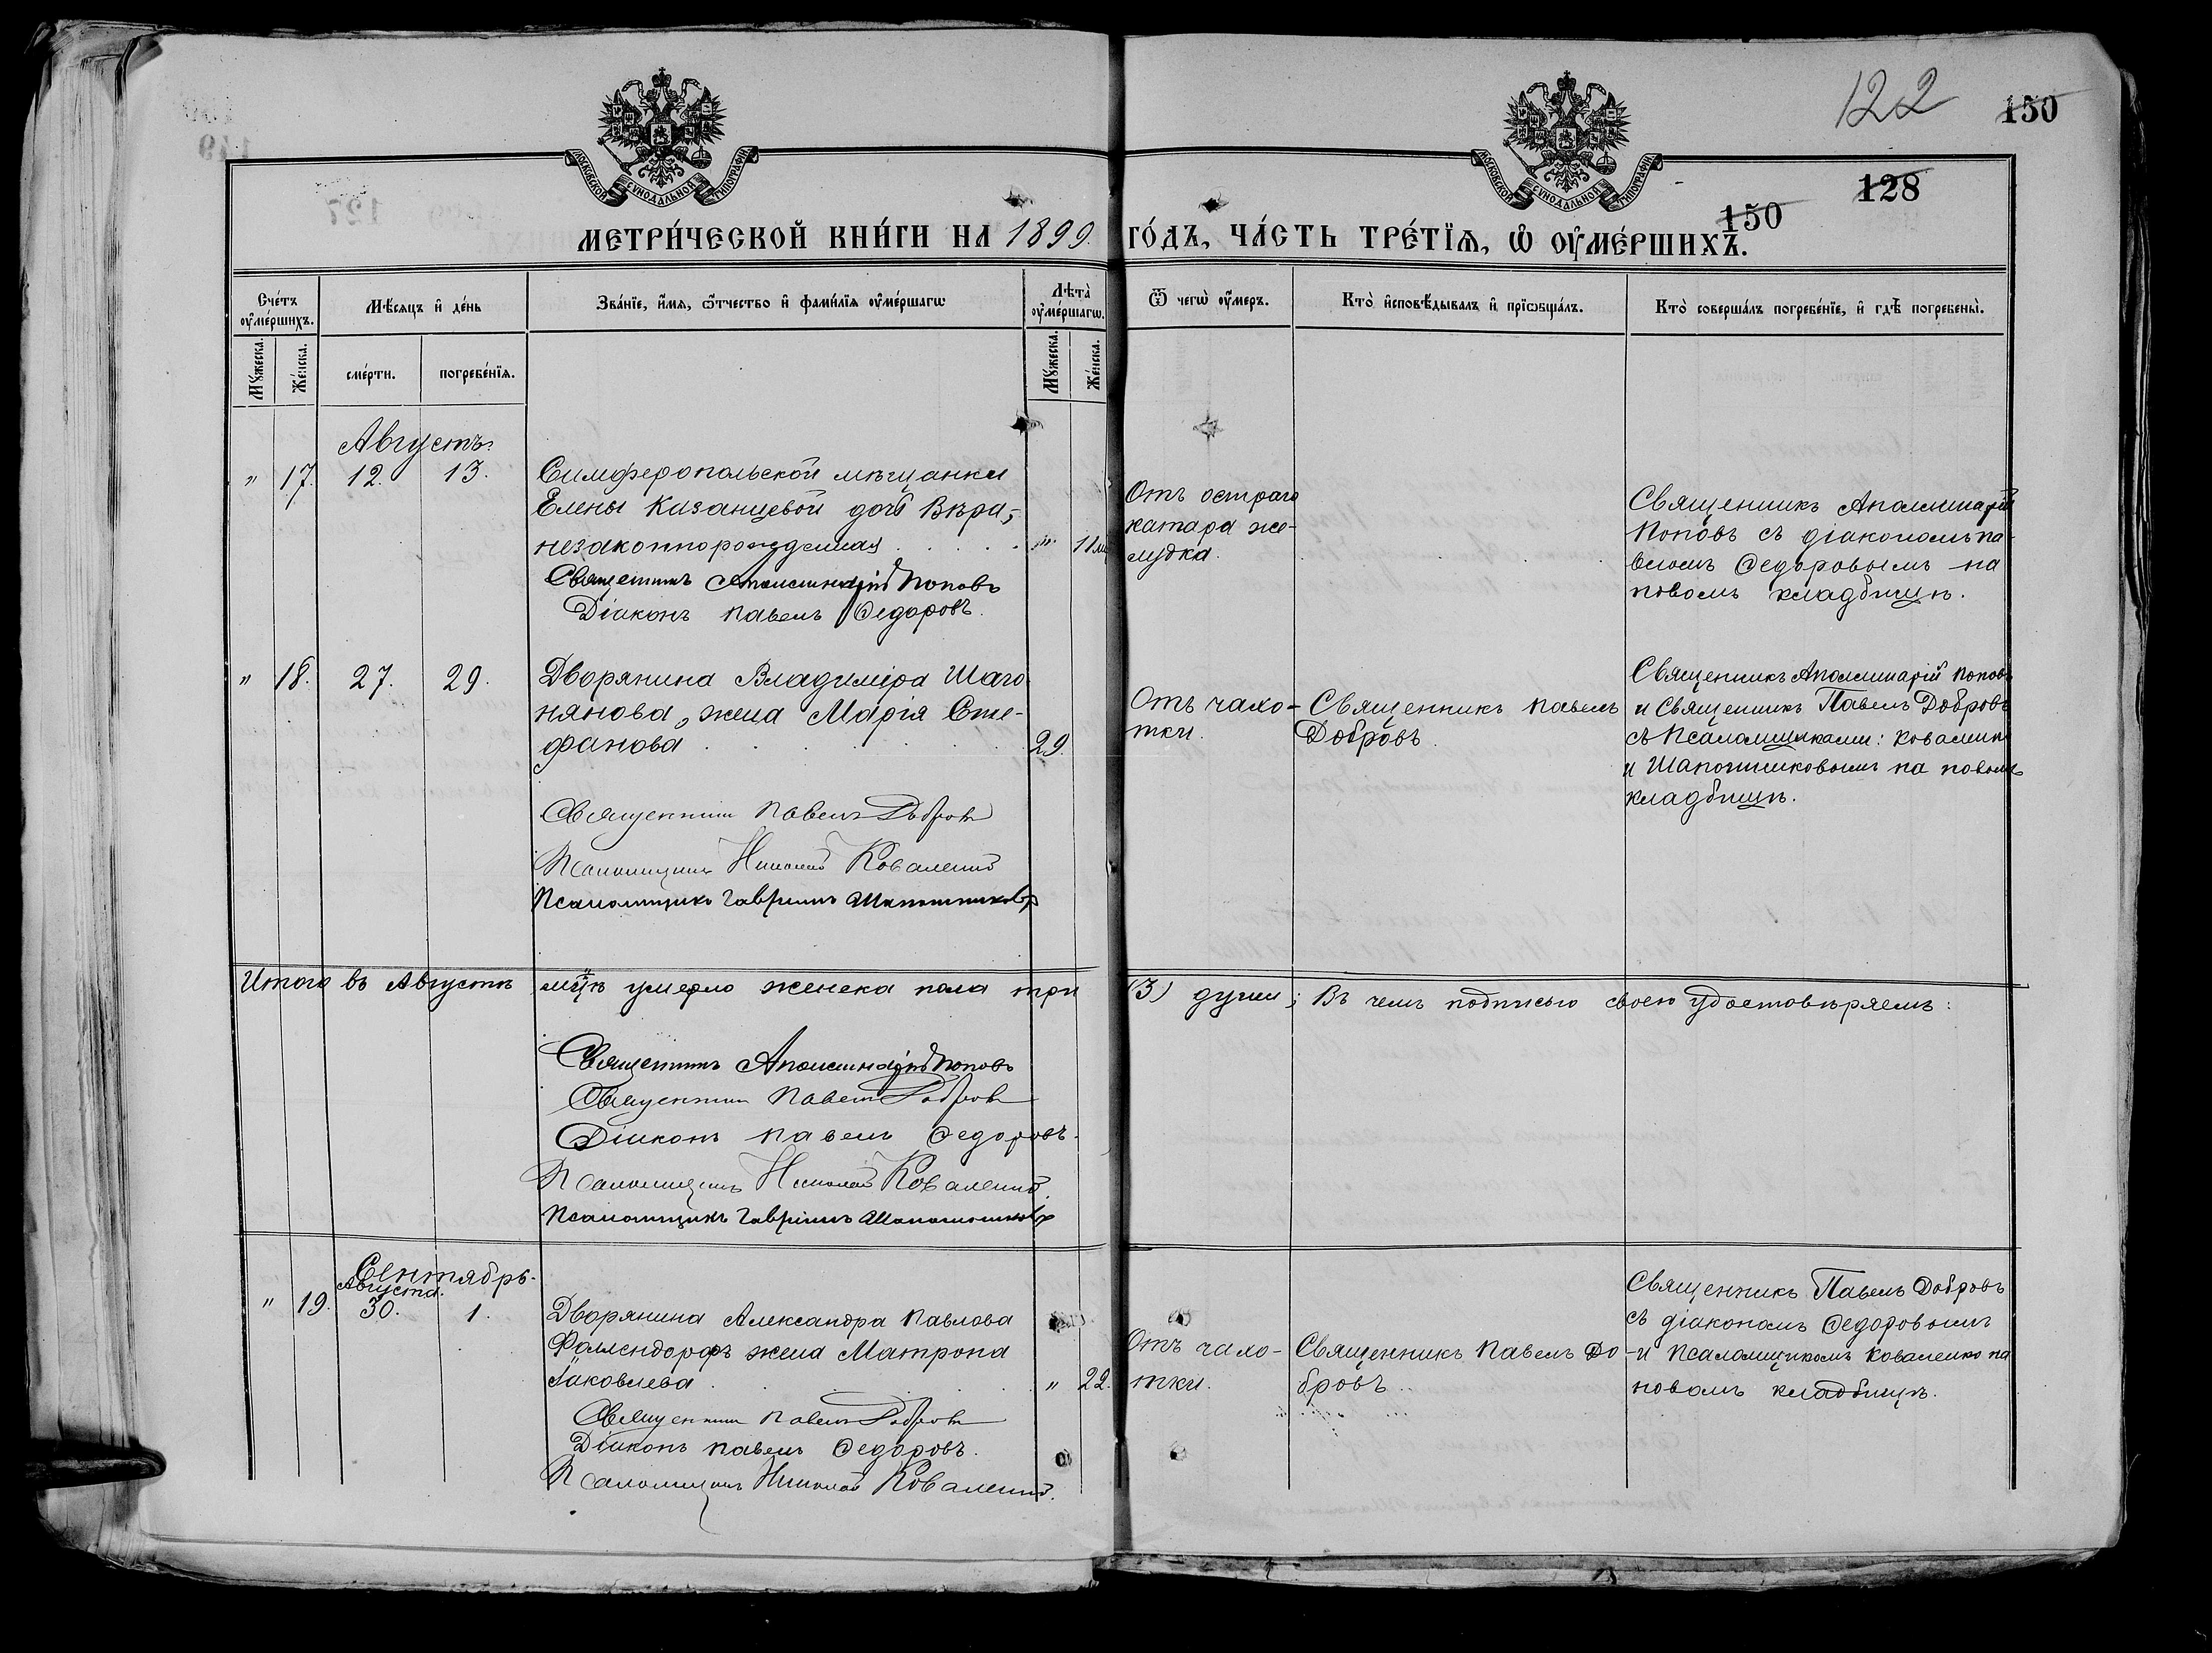 122
150
128
150
МОСКОВСКОЙ СѴНОДАЛЬНОЙ ТИПОГРАФІИ
МОСКОВСКОЙ СѴНОДАЛЬНОЙ ТИПОГРАФІИ
МЕТРИ́ЧЕСКОЙ КНИ́ГИ НА 1899. ГО́ДЪ, ЧА́СТЬ ТРЕ́ТЇѦ, Ѽ ОУ҆МЕ́РШИХЪ.
Сче́тъ оу҆ме́ршихъ.
Мѣ́сяцъ и҆ де́нь
Зва́нїе, и҆́мя, ѻ҆́тчество и҆ фами́лїя оу҆ме́ршагѡ
Лѣта̀ оу҆ме́ршагѡ.
Ѿ чегѡ̀ оу҆́меръ.
Кто̀ и҆сповѣ́дывалъ и҆ прїѡбща́лъ.
Кто̀ соверша́лъ погребе́нїе, и҆ гдѣ̀ погребены̀.
Мꙋ́жеска.
Же́нска.
сме́рти.
погребе́нїя.
Мꙋ́жеска.
Же́нска.
Августъ.
" 17. 12. 13.
Симферопольской мѣщанки
Елены Казанцевой дочь Вѣра,
незаконнорожденная . . . . " 11 мц
Священникъ Аполлинарій Поповъ
Діаконъ Павелъ Ѳедоровъ.
Отъ остраго
катара же-
лудка.
Священникъ Аполлинарій
Поповъ съ діакономъ Па-
вломъ Ѳедоровымъ на
новомъ кладбищѣ.
" 18. 27. 29.
Дворянина Владиміра Шаго
нянова, жена Марія Сте-
фанова . . . . . . 29.
Священникъ Павелъ Добровъ
Псаломщикъ Николай Коваленко
Псаломщикъ Гавріилъ Шапошниковъ
Отъ чахо-
тки.
Священникъ Павелъ
Добровъ.
Священникъ Аполлинарій Поповъ
и Священникъ Павелъ Добровъ
съ Псаломщиками: Коваленко
и Шапошниковымъ на новомъ
кладбищѣ.
Итого въ Августѣ м͠цѣ умерло женска пола три (3) души; Въ чемъ подписью своею удостовѣряемъ:
Священникъ Аполлинарій Поповъ
Священникъ Павелъ Добровъ
Діаконъ Павелъ Ѳедоровъ.
Псаломщикъ Николай Коваленко.
Псаломщикъ Гавріилъ Шапошниковъ
Сентябрь.
Августа.
" 19. 30. 1.
Дворянина Александра Павлова
Фаллендорфъ жена Матрона
Іаковлева . . . . . " 22.
Священникъ Павелъ Добровъ
Діаконъ Павелъ Ѳедоровъ.
Псаломщикъ Николай Коваленко.
Отъ чахо-
тки.
Священникъ Павелъ До-
бровъ.
Священникъ Павелъ Добровъ
съ діакономъ Ѳедоровымъ
и Псаломщикомъ Коваленко на
новомъ кладбищѣ.